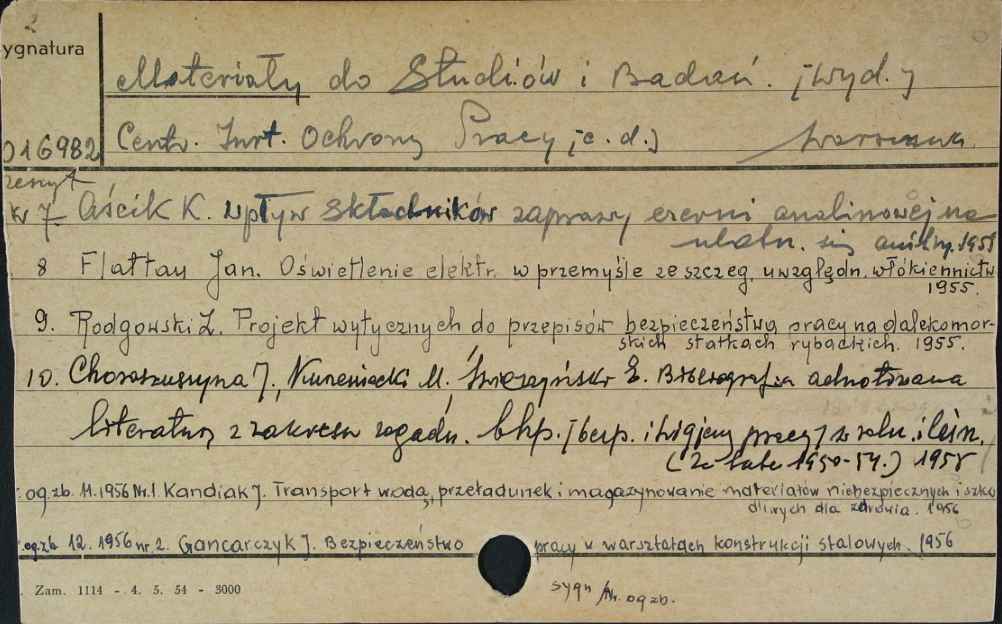 2
ygnatura
Materiały do Studiów i Badań. [wyd.]
016982
Centr. Inst. Ochrony Pracy [c. d.] Warszawa.
zeszyt
nr 7 Aścik K. Wpływ składników zaprawy czerni anilinowej na
ulatn. się aniliny. 1955
8 Flattau Jan. Oświetlenie elektr. w przemyśle ze szczeg. uwzględn. włókiennictw
1955.
9. Rodgowski Z. Projekt wytycznych do przepisów bezpieczeństwa pracy na dalekomor-
skich statkach rybackich. 1955.
10. Choroszuszyna J., M. E. Bibliografia adnotowana
literatury z zakresu zagadn. bhp. [bezp. i higjeny pracy] w roln. i leśn.
(Za lata 1950-54.) 1955
: og.zb. 11. 1956 Nr. 1. Kandiak J. Transport wodą, przeładunek i magazynowanie materiałów niebezpiecznych i szko
dliwych dla zdrowia. 1956
og.zb. 12. 1956 nr 2. Gancarczyk J. Bezpieczeństwo pracy w warsztatach konstrukcji stalowych. 1956
Zam. 1114 - 4. 5. 54 - 3000
sygn / Nr. og zb.